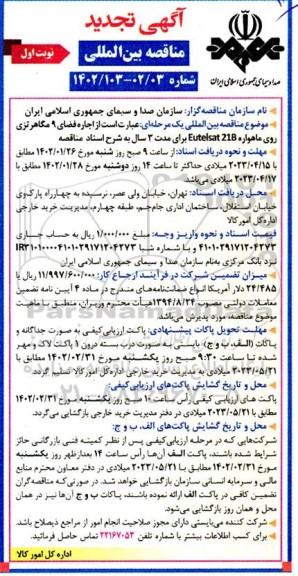 آگهی تجدید
مناقصه بین‌المللی
نوبت اول
شماره ۱۴۰۲/۱۰۳-۰۲/۰۳
صدا و سیمای جمهوری اسلامی ایران
نام سازمان مناقصه‌گزار: سازمان صدا و سیمای جمهوری اسلامی ایران
موضوع مناقصه بین‌المللی یک مرحله‌ای: عبارت است از اجاره فضای ۹ مگاهرتزی
روی ماهواره Eutelsat 21B برای مدت ۳ سال به شرح اسناد مناقصه
مهلت و نحوه دریافت اسناد: از ساعت ۹ صبح روز شنبه مورخ ۱۴۰۲/۰۱/۲۶ مطابق
با ۲۰۲۳/۰۴/۱۵ میلادی حداکثر تا ساعت ۱۴ روز دوشنبه مورخ ۱۴۰۲/۰۱/۲۸ مطابق با
۲۰۲۳/۰۴/۱۷ میلادی می‌باشد.
محل دریافت اسناد: تهران، خیابان ولی عصر، نرسیده به چهارراه پارک‌وی
خیابان استقلال، ساختمان اداری جام‌جم، طبقه چهارم، مدیریت خرید خارجی
اداره کل امور کالا
قیمت اسناد و نحوه واریز وجه: مبلغ ۱/۰۰۰/۰۰۰ ریال به حساب جاری
۴۱۰۱۰۲۹۱۷۱۲۰۴۲۷۳ و با شماره شبا IR۳۱۰۱۰۰۰۰۴۱۰۱۰۲۹۱۷۱۲۰۴۲۷۳
نزد بانک مرکزی به‌نام سازمان صدا و سیمای جمهوری اسلامی ایران
میزان تضمین شرکت در فرآیند ارجاع کار: ۱۱/۹۹۷/۶۰۰/۰۰۰ ریال یا
۲۴/۴۸۵ دلار آمریکا انواع ضمانت‌های مندرج در ماده ۴ آیین نامه تضمین
معاملات دولتی مصوب ۱۳۹۴/۸/۲۴ هیأت محترم وزیران، منطبق با ماهیت
موضوع مناقصه، مورد پذیرش می‌باشد.
مهلت تحویل پاکات پیشنهادی: پاکت ارزیابی کیفی به صورت جداگانه و
پاکات (الف، ب و ج) بایستی به صورت دربسته درون ۱ پاکت لاک و مهر
شده تا ساعت ۹:۳۰ صبح روز یکشنبه مورخ ۱۴۰۲/۰۲/۳۱ مطابق با
۲۰۲۳/۰۵/۲۱ میلادی به مدیریت خرید خارجی اداره کل امور کالا تسلیم گردد.
محل و تاریخ گشایش پاکت‌های ارزیابی کیفی:
پاکت های ارزیابی کیفی رأس ساعت ۱۰ صبح روز یکشنبه مورخ ۱۴۰۲/۰۲/۳۱
مطابق با ۲۰۲۳/۰۵/۲۱ میلادی در دفتر مدیریت خرید خارجی بازگشایی می‌گردد.
محل و تاریخ گشایش پاکت‌های الف، ب و ج:
شرکت‌هایی که در مرحله ارزیابی کیفی پس از نظر کمیته فنی بازرگانی حائز
شرایط شناخته شوند، پاکت الف آن‌ها رأس ساعت ۱۴ بعدازظهر روز یکشنبه
مورخ ۱۴۰۲/۰۲/۳۱ مطابق با ۲۰۲۳/۰۵/۲۱ میلادی در دفتر معاون محترم منابع
مالی و سرمایه انسانی سازمان بازگشایی خواهد شد. در صورتی‌که مناقصه‌گران
تضمین کافی در پاکت الف ارائه نموده باشند، پاکات ب و ج آن‌ها نیز در همان
محل و همان روز بازگشایی می‌شود.
شرکت کننده می‌بایستی دارای مجوز صلاحیت انجام امور از مراجع ذیصلاح باشد.
برای کسب اطلاعات بیشتر با شماره تلفن ۲۲۱۶۷۰۵۳ تماس حاصل فرمائید.
اداره کل امور کالا